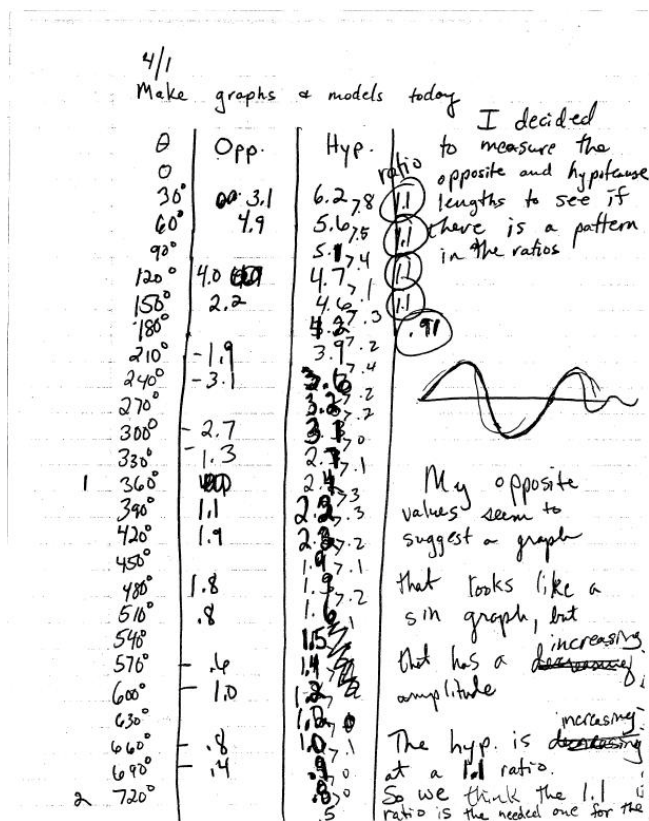 4/1
Make graphs & models today
θ Opp. Hyp. ratio
0
30° 3.1 6.2 7.8 1.1
60° 4.9 5.6 7.5 1.1
90° 5.1 7.4 1.1
120° 4.0 4.7 7.1 1.1
150° 2.2 4.6 7.3 .91
180°
210° -1.9 3.9 7.2
240° -3.1 7.4
270° 3.2 7.2
300° -2.7 7.0
330° -1.3 7.1
1 360° 2.4
390° 1.1 7.3
420° 1.9 7.2
450° 1.9 7.1
480° 1.8 7.2
510° .8
540° 1.5
570° -.6 1.4
600° -1.0
630°
660° -.8 1.0
690° -.4
2 720°
.5
I decided
to measure the
opposite and hypotenuse
lengths to see if
there is a pattern
in the ratios
My opposite
values seem to
suggest a graph
that looks like a
sin graph, but
that has a increasing
amplitude
The hyp. is increasing
at a 1.1 ratio.
So we think the 1.1
ratio is the needed one for the